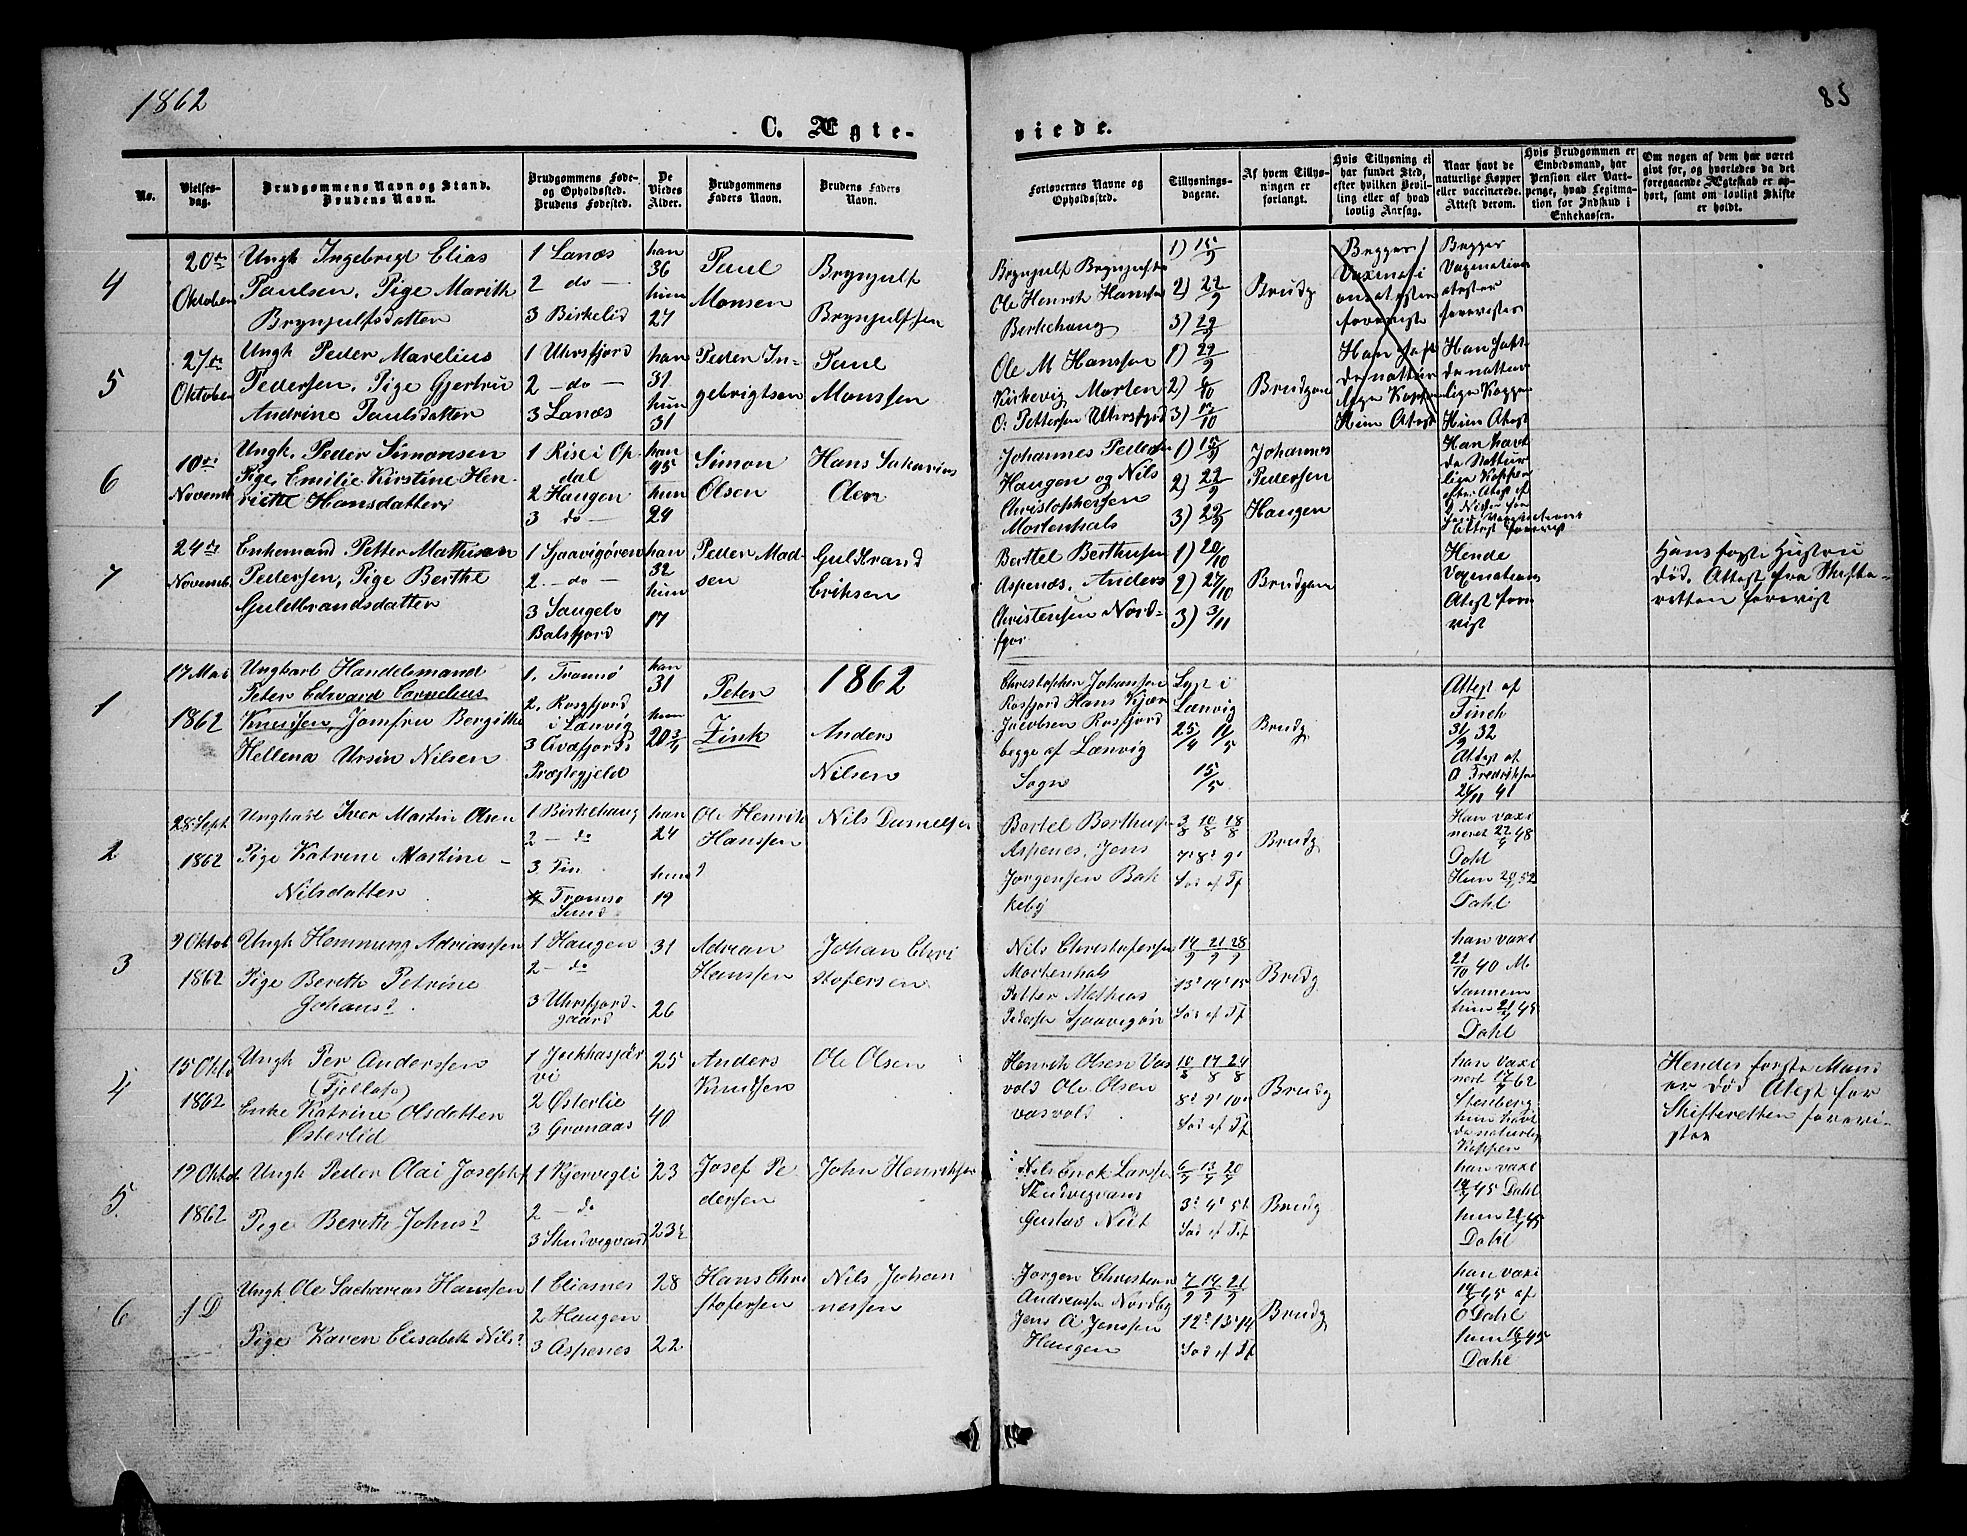 1862
85
C. Ægte-
viede.
No.
Vielses-
dag.
Brudgommens Navn og Stand.
Brudens Navn.
Brudgommens Føde-
og Opholdssted.
Brudens Fødested.
De
Viedes
Alder.
Brudgommens
Faders Navn.
Brudens Faders
Navn.
Forlovernes Navne og
Opholdssted.
Tillysnings-
dagene.
Af hvem Tillys-
ningen er
forlangt.
Hvis Tillysning ei
har fundet Sted,
efter hvilken Bevil-
ling eller af hvad
lovlig Aarsag.
Naar havt de
naturlige Kopper
eller vaccinerede.
Attest derom.
Hvis Brudgommen er
Embedsmand, har
Pension eller Vart-
penge, hvad Legitima-
tion for Indskud i
Enkekassen.
Om nogen af dem har været
gift før, og hvorledes da det
foregaaende Ægteskab er op-
hørt, samt om lovligt Skifte
er holdt.
4
20de
Oktober
Ungk Ingebrigt Elias
Paulsen, Pige Marith
Brynjulfsdatter
1 Lanæs
2 do
3 Birkelid
han
36
hun
27
Paul
Monsen
Brynjulf
Brynjulfsen
Brynjulf Brynjulfs
Ole Henrik Hansen
Berkehaug
1) 15/9
2) 22/9
3) 29/9
Brudg
Begges
Vaxinati
onsatester
foreviste
Begges
Vaxinations
atester
forevister
5
27de
Oktober
Ungk Peder Marelius
Pedersen, Pige Gjertru
Andrine Paulsdatter
1 Uhrsfjord
2 - do -
3 Lanæs
han
31
hun
31
Peder In-
gebrigtsen
Paul
Monssen
Ole M Hanssen
Kirkevig Morten
O. Pettersen Uhrsfjord
1) 29/9
2) 6/10
3) 13/10
Brudgom
Han haft
de nattur
lige Kopper
Hun Atest
Han haft
de nattur
lige Kopper
Hun Atest
6
10de
Novemb
Ungk. Peder Simonsen
Pige, Emilie Kirstine Hen-
riette Hansdatter
1 Rise i Op
dal
2 Haugen
3 do -
han
45
hun
29
Simon
Olsen
Hans Sakarias
Olsen
Johannes Peders
Haugen og Nils
Christophersen
Mortenhals
1) 15/9
2) 22/9
3) 29/9
Johannes
Pedersen
Haugen
Han havt
de Nattur
lige Kopper
efter Atest af
Attest forevist
7
24de
Novemb
Enkemand Petter Mathisen
Pedersen, Pige Berthe
Guldbrandsdatter
1 Sjaavigøren
2 - do -
3 Sangelv
Balsfjord
han
32
hun
17
Peder Mad-
sen
Guldbrand
Eriksen
Berttel Berthusen
Aspenæs, Anders
Christensen Nord-
fjor
1) 20/10
2) 27/10
3) 3/11
Brudgom
Hende
Vaxinations
Atest fore
vist
Hans første Hustru
død. Attest fra Skifte-
retten forevist
1
17 Mai
1862
Ungkarl Handelsmand
Peter Edvard Cornelius
Knudsen, Jomfru Bergitte
Hellena Ursin Nilsen
1. Tromsø
2. Rosfjord
i Lænvig
3 Qvæfjords
Præstegjeld
han
31
hun
20 3/4
Peter
Zink
1862
Anders
Nilsen
Christopher Johansen
Rosfjord Hans Kjær
Jacobsen Rosfjord
begge af Lænvig
Sogn
Lyst i
Lænvig
25/4 11/5
15/5
Brudg
Attest af
Finch
31/9 32
Attest af
O Fredriksen
21/11 41
2
28 Sept
1862
Ungkarl Iver Martin Olsen
Pige Katrine Martine -
Nilsdatter
1 Birkehaug
2 - do
3 Tin
Tromsø
Sund
han
24
hun
19
Ole Henrik
Hanssen
Nils Danielsen
Bertel Berthus
Aspenes, Jens
Jørgensen Bak
keby
3/8 10/8 18/8
7' 8' 9'
Sød ef Tf
Brudg
Han vaxi
neret 22/9 48
Dahl
Hun 20/9 52
Dahl
3
9 Oktob
1862
Ungk Hemming Adriansen
Pige Bereth Petrine
Johans
1 Haugen
2 - do
3 Uhrsfjord-
gaard
31
26
Adrian
Hanssen
Johan Chri
stofersen
Nils Christofersen
Mortenhals
Petter Mathias
Peders Sjaavigør
14/9 21/9 28/9
13' 14' 15
Sød ef Tf
Brudg
han vaxi
21/10 40 M.
hun 21/9 45
Dahl
4
15 Okto
1862
Ungk Per Anderssen
(Fjellap)
Enke Katrine Olsdatter
Østerlid
1 Jukkasjär
vi
2 Østerlie
3 Gronaas
25
40
Anders
Knudsen
Ole Olsen
Henrik Olsen Vas
vold Ole Olsen
vasvold
10/8 17/8 24/8
8' 9' 10
Sød ef Tf
Brudg
han vaxi
nert 17/7 62
Stenberg
hun havt
de naturlig
Kopper
Hendes første Mand
er død Atest for
Skifteretten forevi-
ster
5
19 Oktob
1862
Ungk Peder Olai Josephs
Pige Bereth Johns
1 Kjervigli
2 - do
3 Skutvigvard
23
23
Josef Pe
dersen
John Henriksen
Nils Enok Larsen
Skutvigvard
Gustav Nist
6/9 13/9 20/9
3' 4' 5'
Sød ef Tf
Brudg
han vaxi
19/9 45 Dahl
hun 21/9 45
Dahl
6
s D
Ungk Ole Sacharias Hanssen
Pige Karen Elisabeth Nils
1 Eliasnes
2 Haugen
3 Aspenes
28
22
Hans Chri
stofersen
Nils Johan
nessen
Jørgen Christian
Andreassen Nordby
Jens A Jenssen
Haugen
7/9 14/9 21/9
12' 13' 14
Sød ef Tf
Brudg
han vaxi
19/9 45 af
O Dahl
hun 16/9 45
Dahl